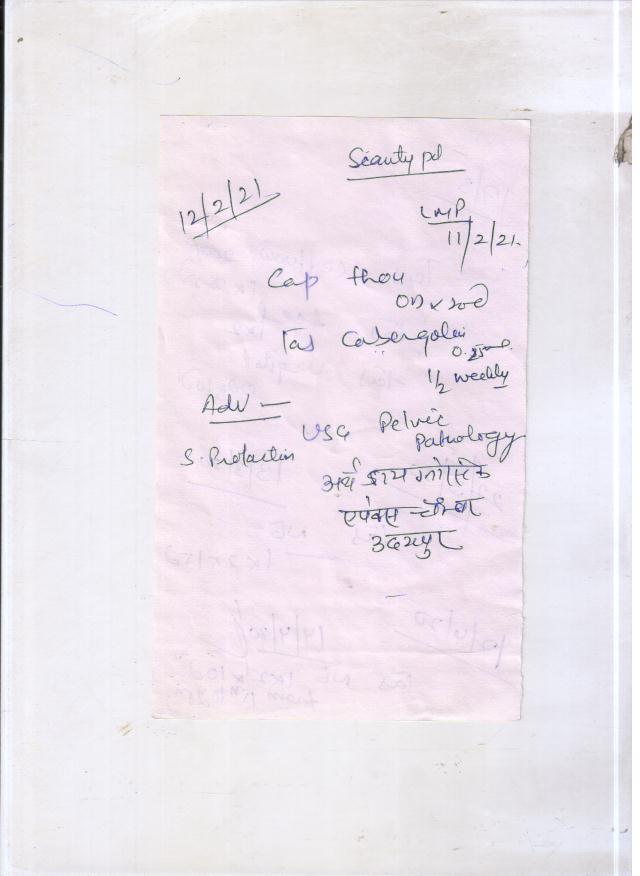 Scauty pd
12/2/21
LMP
11/2/21
Cap
OD x
Tab Cabergolin
0.25
1/2 weekly
Adv —
USG Pelvic
Pathology
S. Prolactin
अर्थ डायग्नोस्टिक
एपेक्स चेम्बर
उदयपुर